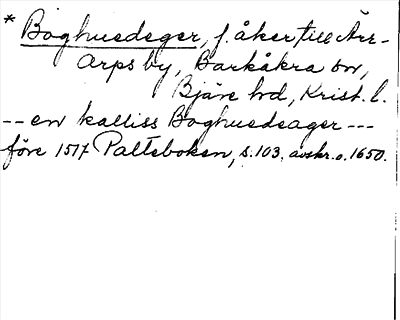 * Boghusdeger, f. åker till Ärr-
Arps by, Barkåkra sn,
Bjäre hd, Krist. l.
-- en kalliss Boghusdeager ---
före 1517 Palteboken, s. 103. avskr. o. 1650.